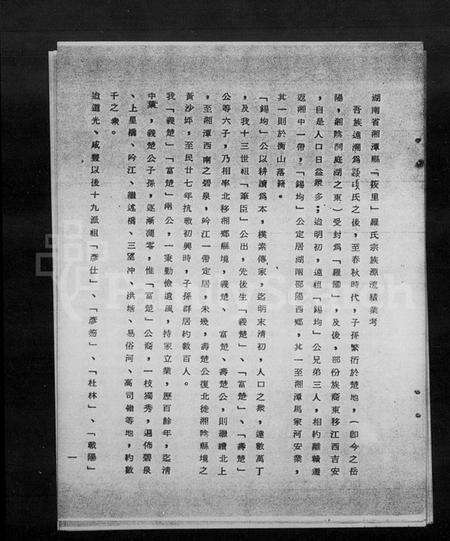 湖南省湘潭縣「皈里」羅氏宗族源流積業考
吾族遠溯為顓頊氏之後，至春秋時代，子孫繁衍於楚地，（即今之岳
陽，湘陰洞庭湖之東）受封為「羅國」，及後，部份族裔東移江西吉安
，自是人口日益眾多；迨明初，遠祖「錫均」公兄弟三人，相約離贛遷
返湘中一帶，「錫均」公定居湖南邵陽西鄉，其一至湘潭馬家河安業，
其一則於衡山落籍。
「錫均」公以耕讀為本，樸素傳家，迄明末清初，人口之眾，達數萬丁
，及我十三世祖「聖臣」公出，先後生「義楚」、「富楚」、「壽楚」
公等六子，乃相率北移湘鄉縣境，義楚、富楚、壽楚公，則繼續北上
，至湘潭西南之碧泉，吟江一帶定居，未幾，壽楚公復北徙湘陰縣境之
黃沙坪，至民廿七年抗戰初興時，子孫群居約數百人。
我「義楚」「富楚」兩公，一秉勤儉遺風，持家立業，歷百餘年，迄清
中葉，義楚公子孫，逐漸凋零，惟「富楚」公裔，一枝獨秀，遍佈碧泉
、上星橋、吟江、繼述橋、三望冲、洪塘、易俗河、高司嶺等地，約數
千之眾。
迨道光、咸豐以後十九派祖「彥仕」、「彥炳」、「杜林」、「戟陽」
一